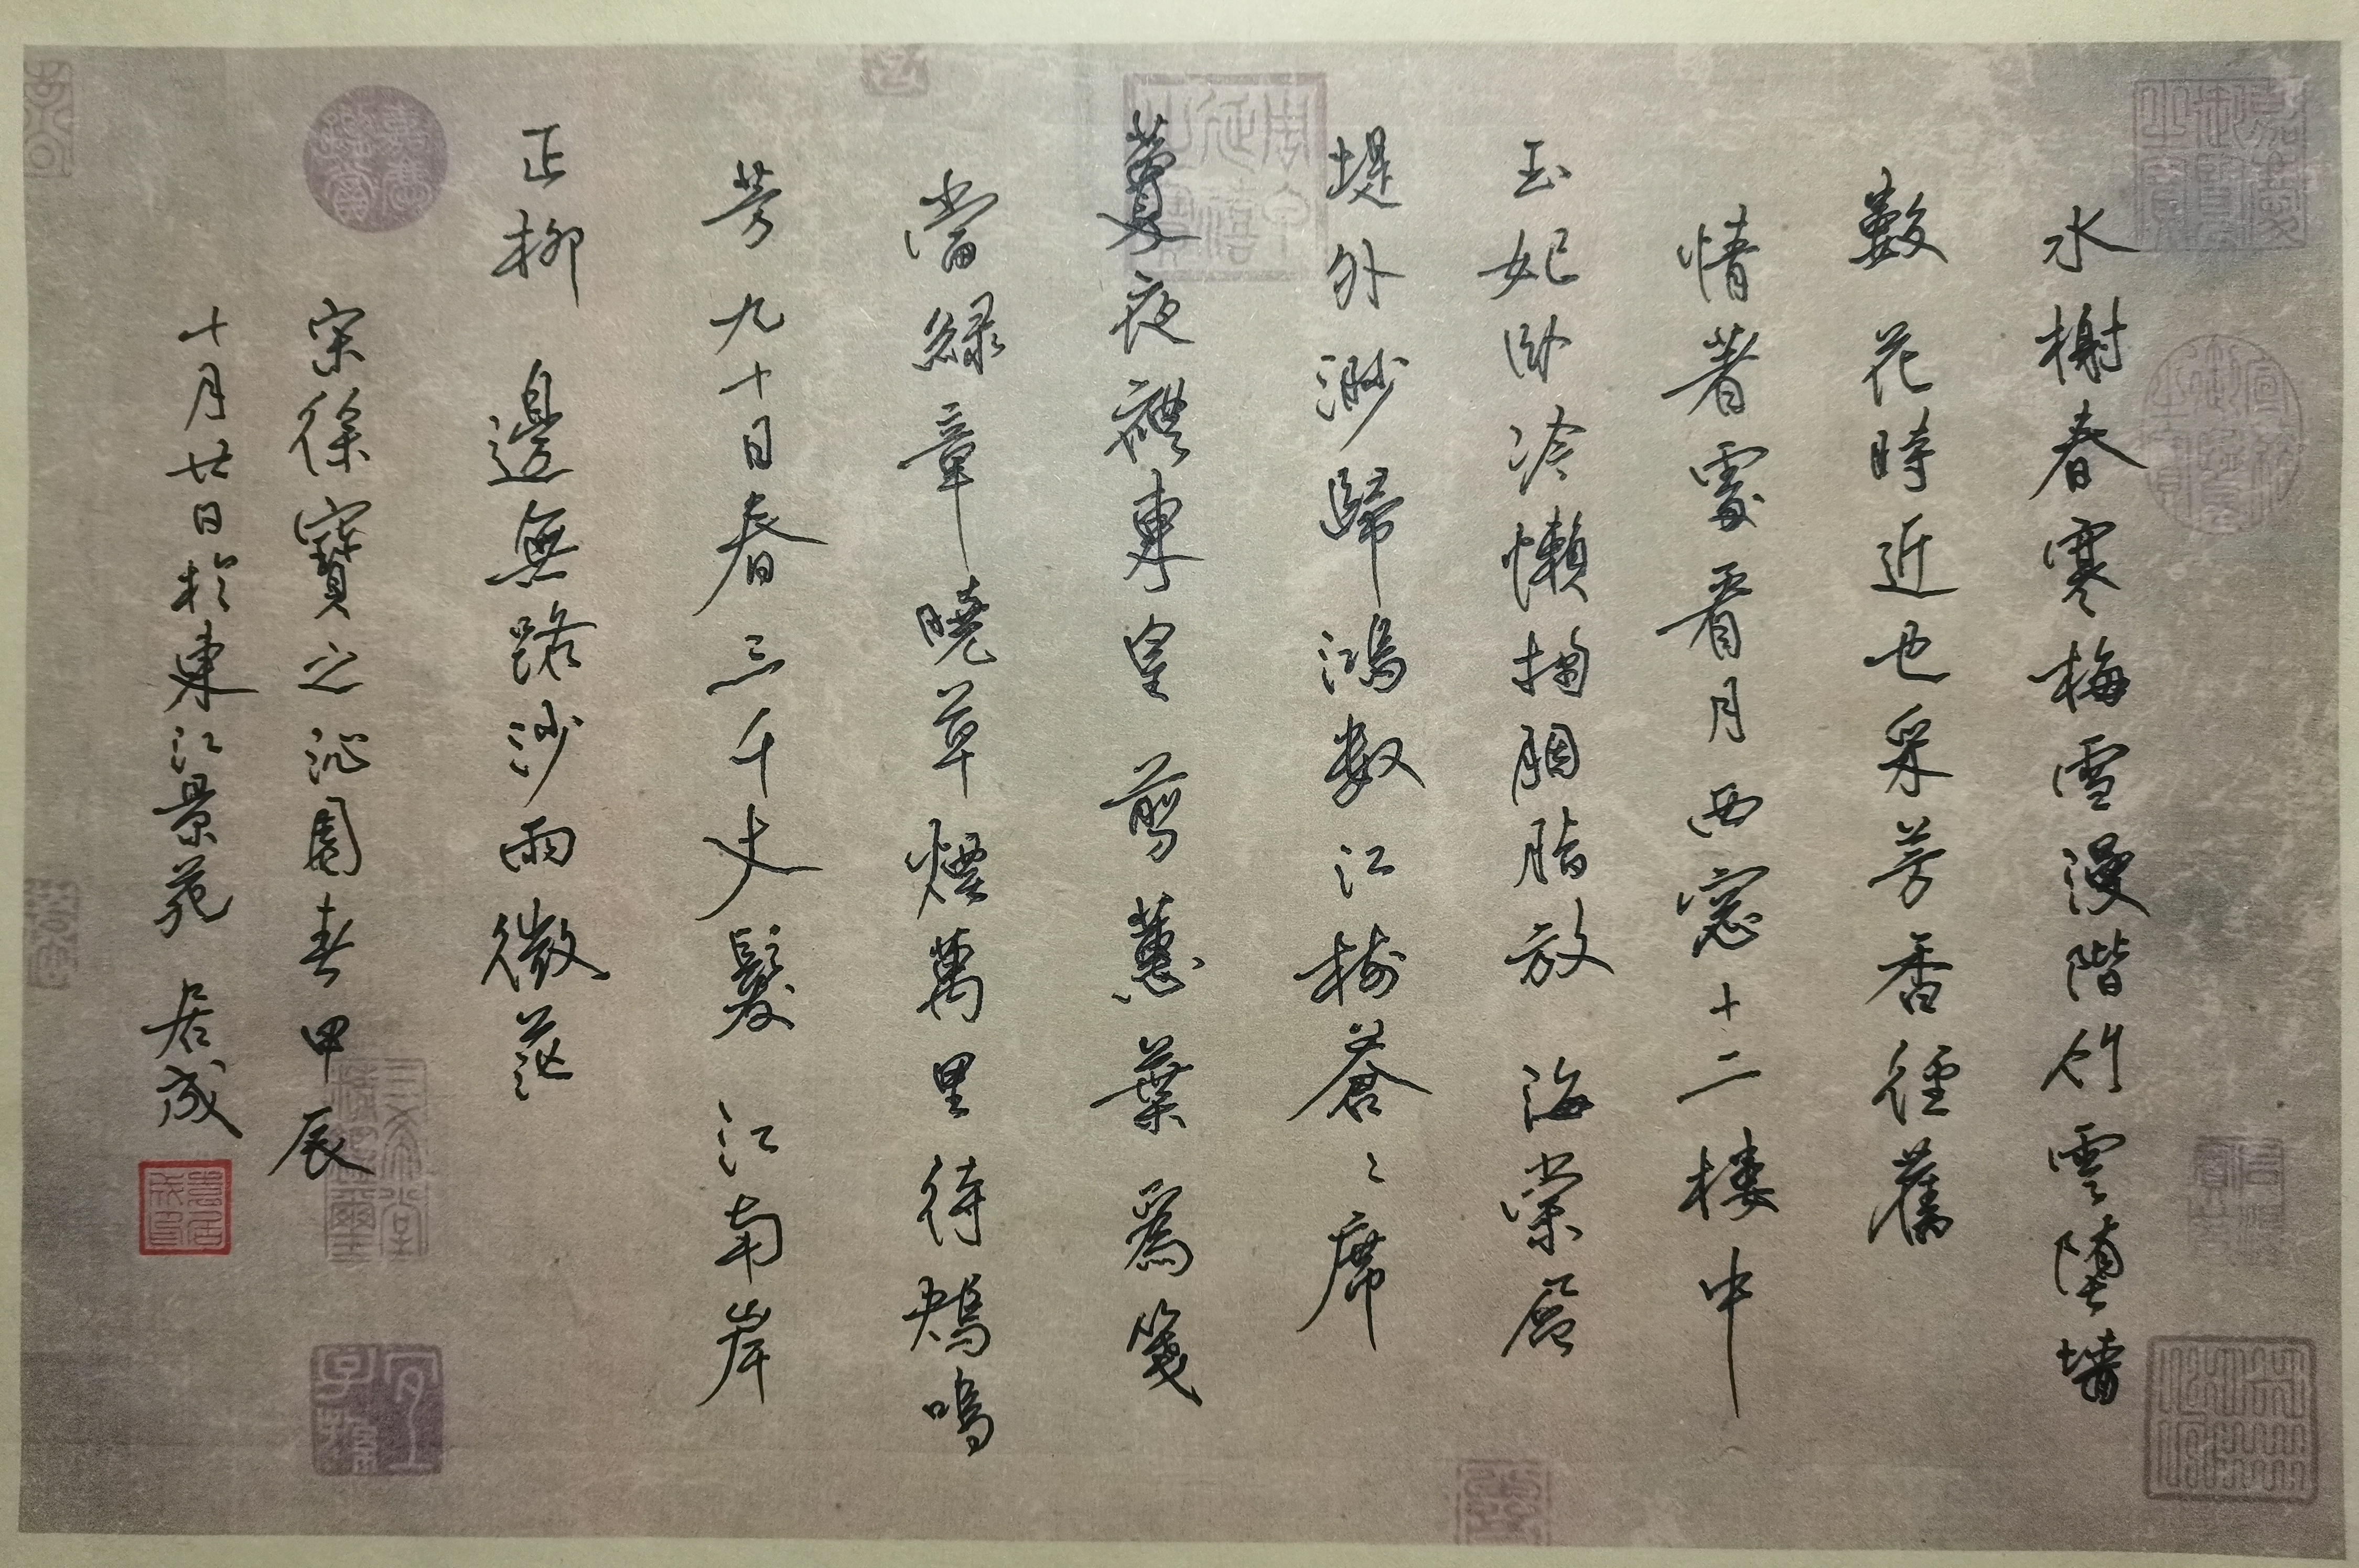 水榭春寒梅雪漫階竹雲墮墻
數花時近也采芳香徑舊
情著處看月西窓十二楼中
玉妃卧冷懶掬胭脂放海棠
堤外渺歸鴻数江樹蒼〻席
夜禮東皇剪蕙葉為箋
當緑章曉草煙萬里待鴂鳴
芳九十日春三千丈髮江南岸
正柳邊無路沙雨微茫
宋徐寶之沁園春甲辰
十月廿日於東江景苑居成